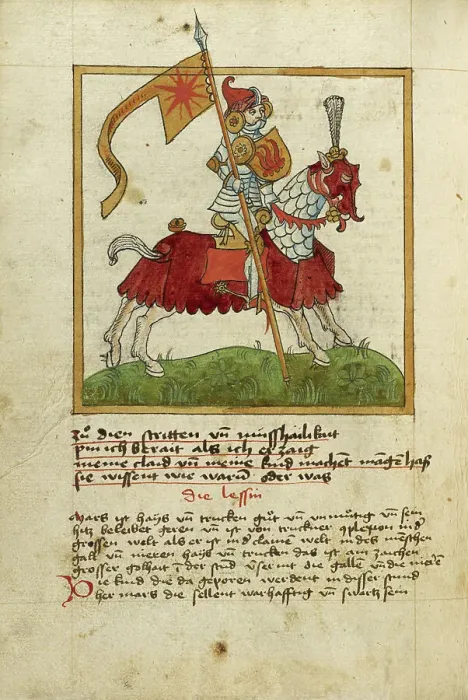 zů dien stritten vn̄ misshailikait
pin ich berait als ich er zaig
meine claid vn̄ meine kind machent mangen haß
sie wissent wie warū oder was
die lessin
Mars ist hays vn̄ trucken gůt vn̄ vnmůtig vn̄ sein
hitz beleibet geren vn̄ ist von truckner 9plexion in d'
grossen welt als er ist in d' clainē welt in des menschen
gall vn̄ nieren hays vn̄ trucken das ist am zaichen
grosser in der stūd die galle vn̄ die niere
Die kind die da geporen werdent in disser stund
her mars die sellent warhafftig vn̄ swartz sein